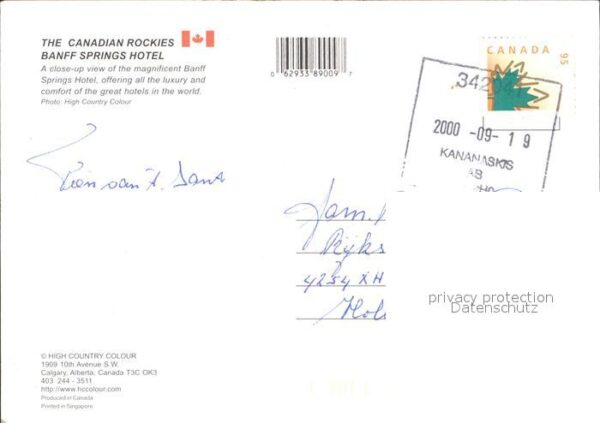 THE CANADIAN ROCKIES
BANFF SPRINGS HOTEL
A close-up view of the magnificent Banff
Springs Hotel, offering all the luxury and
comfort of the great hotels in the world.
Photo: High Country Colour
0 62933 89009 7
CANADA
95
342041
2000 -09- 19
KANANASKIS
AB
Fam.
Rijks
4254 XH
Hol
privacy protection
Datenschutz
© HIGH COUNTRY COLOUR
1909 10th Avenue S.W.
Calgary, Alberta, Canada T3C OK3
403 244 - 3511
http://www.hccolour.com
Produced in Canada
Printed in Singapore